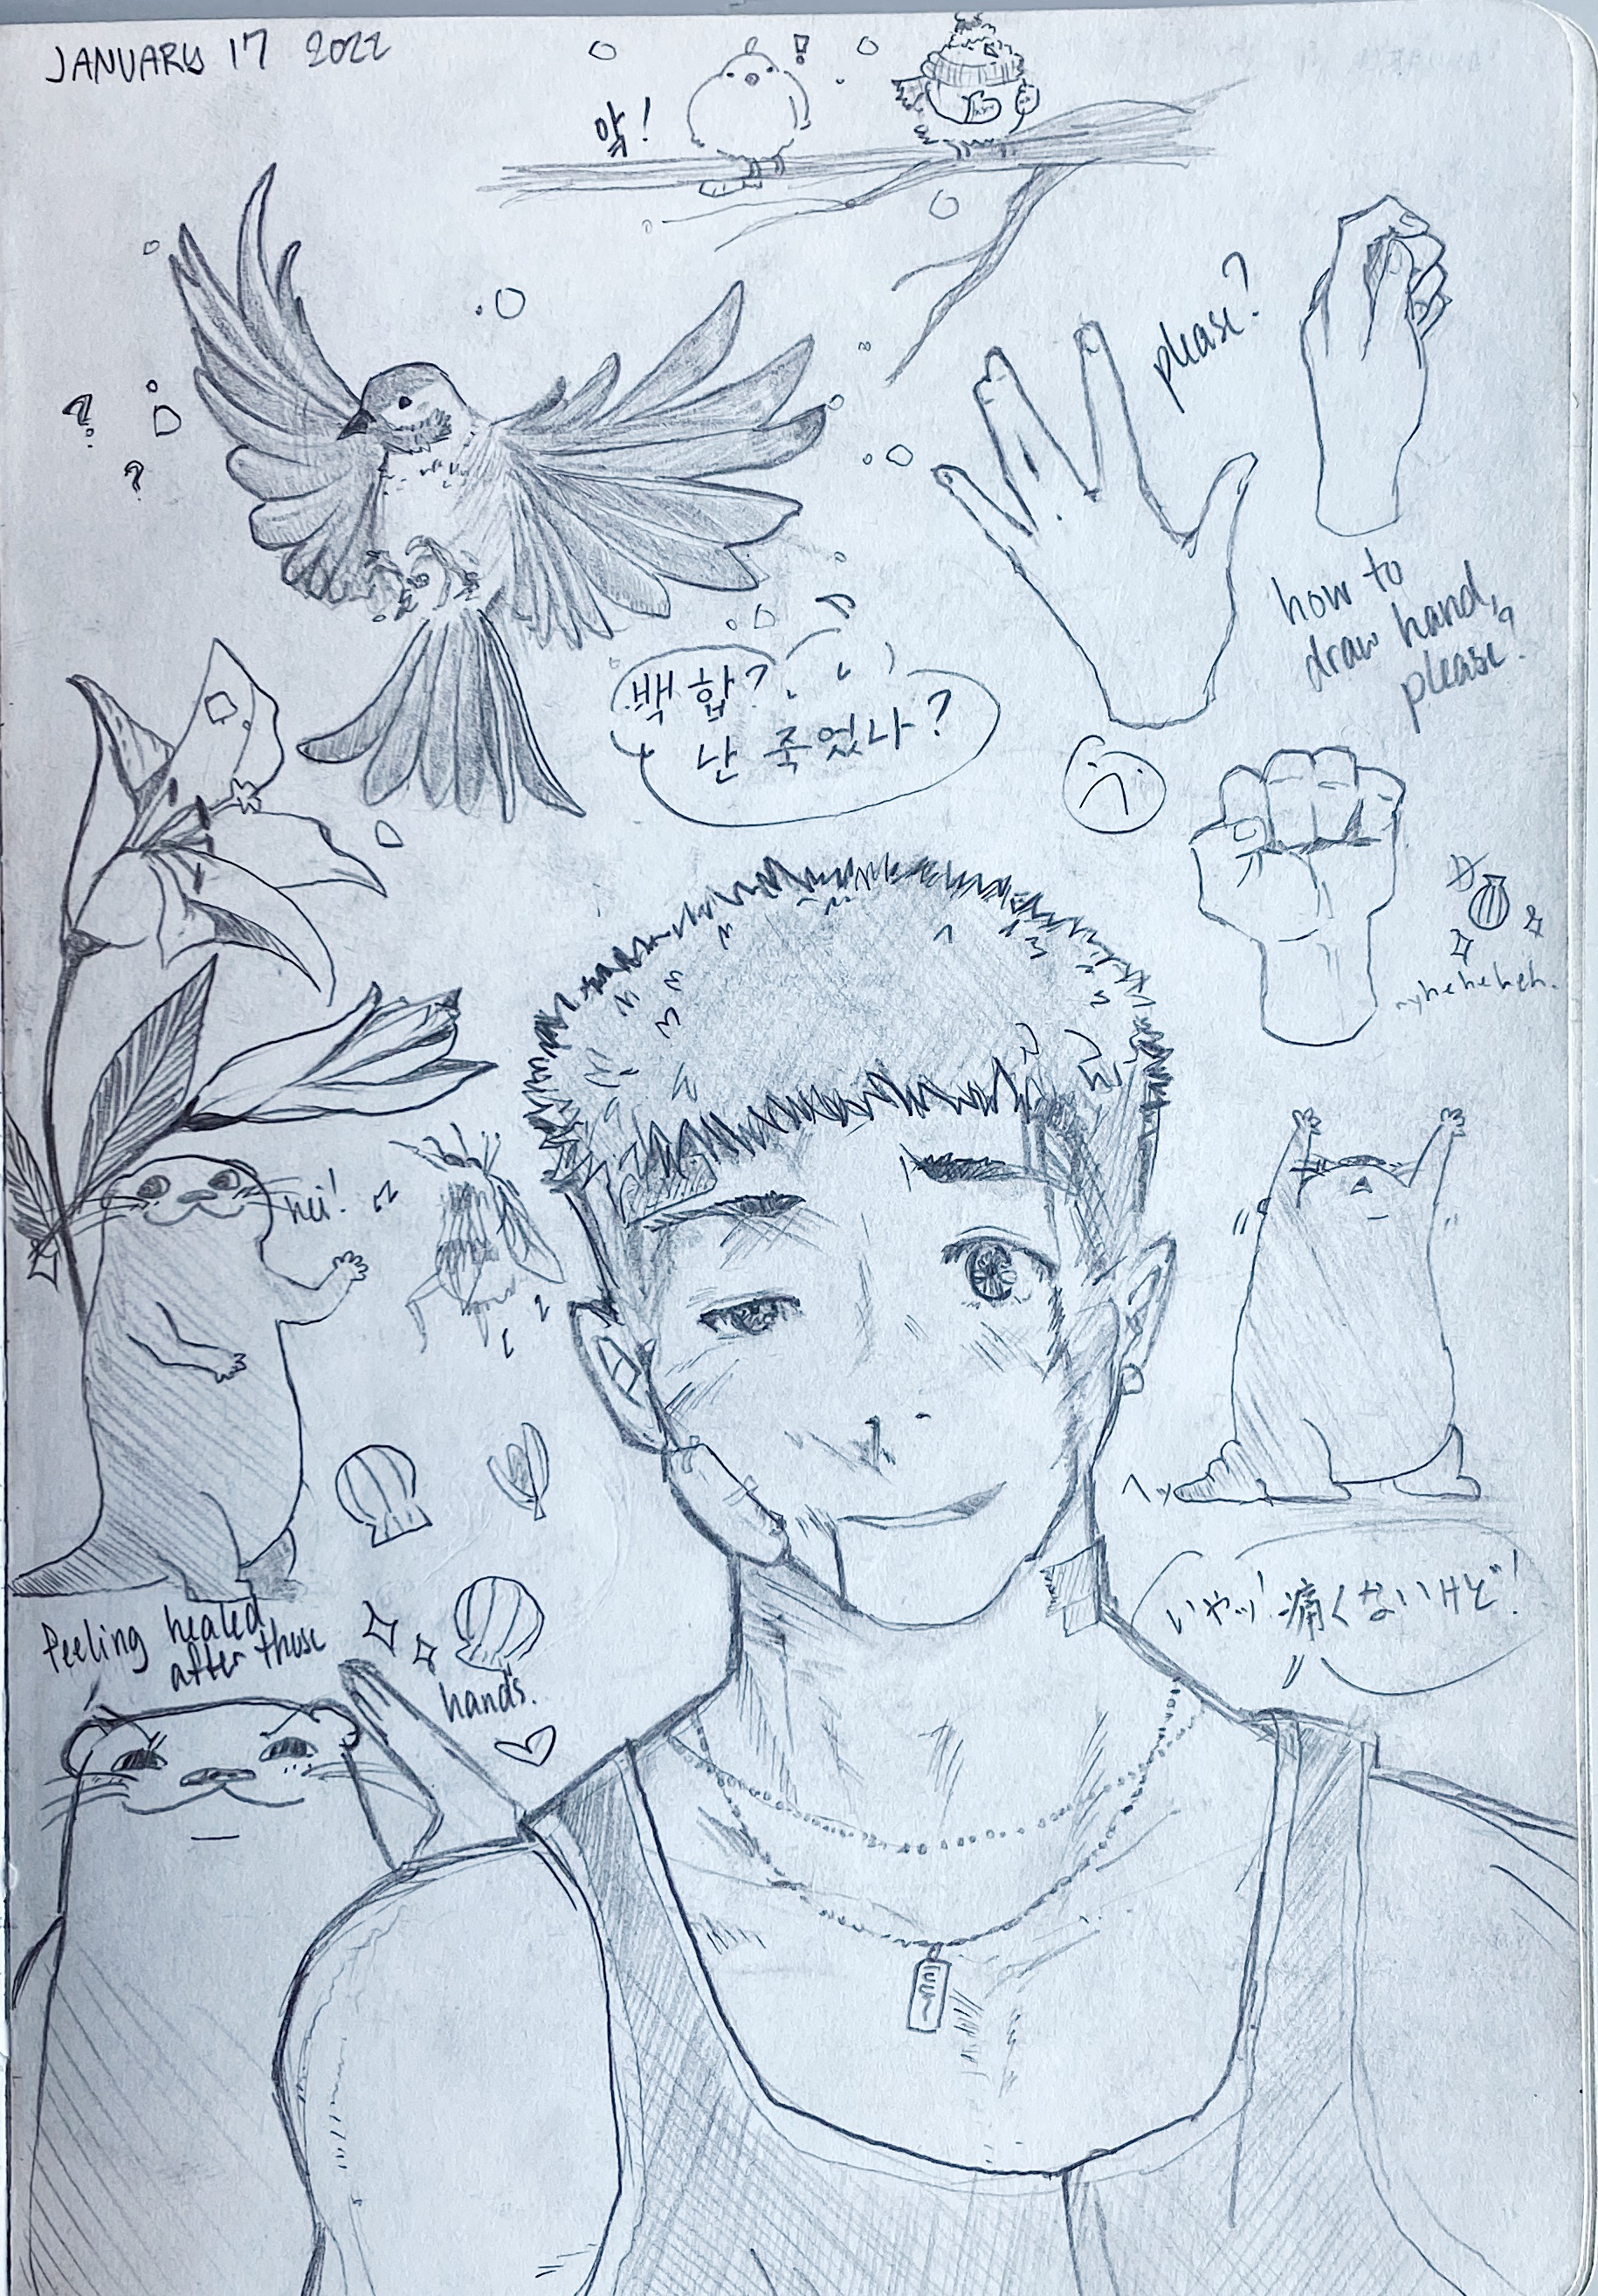 JANUARY 17 2022
앜!
please?
how to
draw hand,
please?
백합?
난 죽었나?
~yheheheh.
hei!
いやッ!痛くないけど!
Feeling healed
after those
hands.